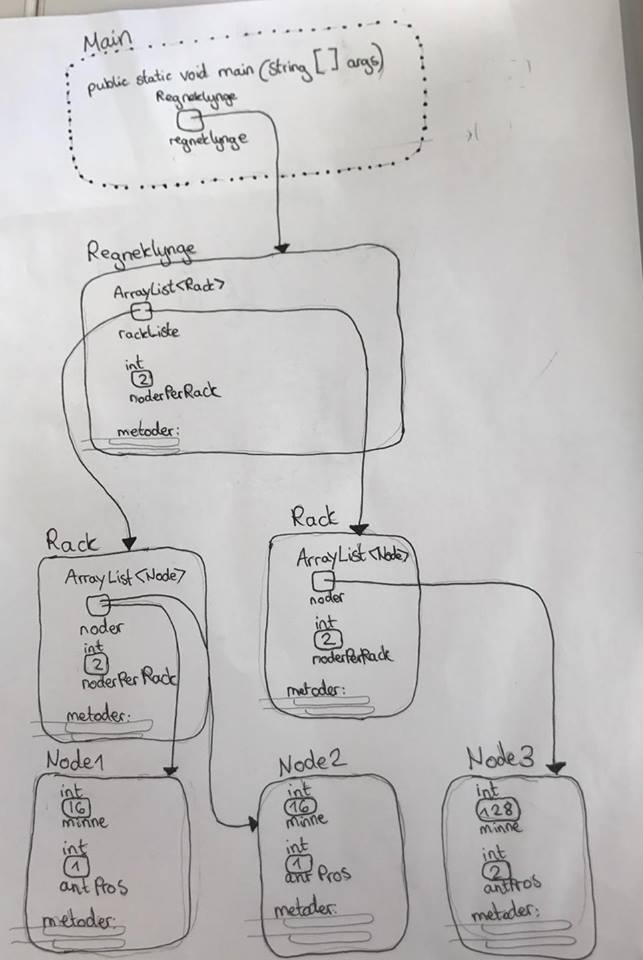 Main
public static void main (String [] args)
Regneklynge
regneklynge
Regneklynge
ArrayList<Rack>
rackListe
int
2
noderPerRack
metoder:
Rack
ArrayList<Node>
noder
int
2
noderPerRack
metoder:
Rack
ArrayList<Node>
noder
int
2
noderPerRack
metoder:
Node1
int
16
minne
int
1
antPros
metoder:
Node2
int
16
minne
int
1
antPros
metoder:
Node3
int
128
minne
int
2
antPros
metoder: